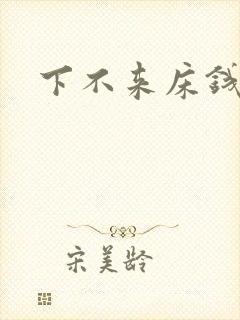 下不来床钱
宋美龄